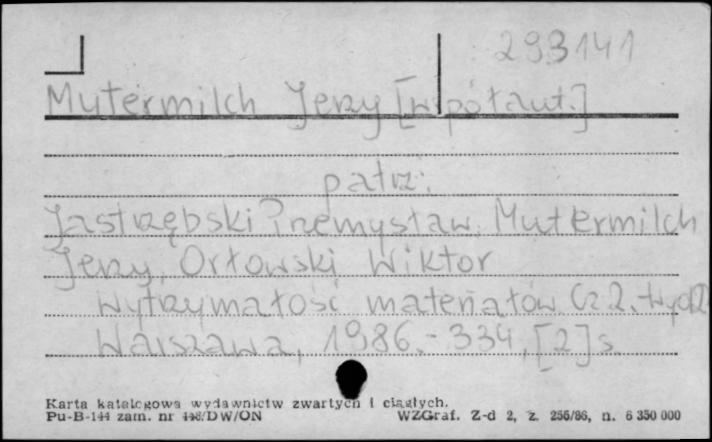 293141
Mutermilch Jerzy [współaut.]
patrz:
Jastrzębski Przemysław, Mutermilch
Jerzy, Orłowski Wiktor
Wytrzymałość materiałów. Cz 2. Wyd 2
Warszawa, 1986.- 334, [2] s.
Karta katalogowa wydawnictw zwartych i ciągłych.
Pu-B-144 zam. nr 448/DW/ON WZGraf. Z-d 2, z. 256/86, n. 6 350 000